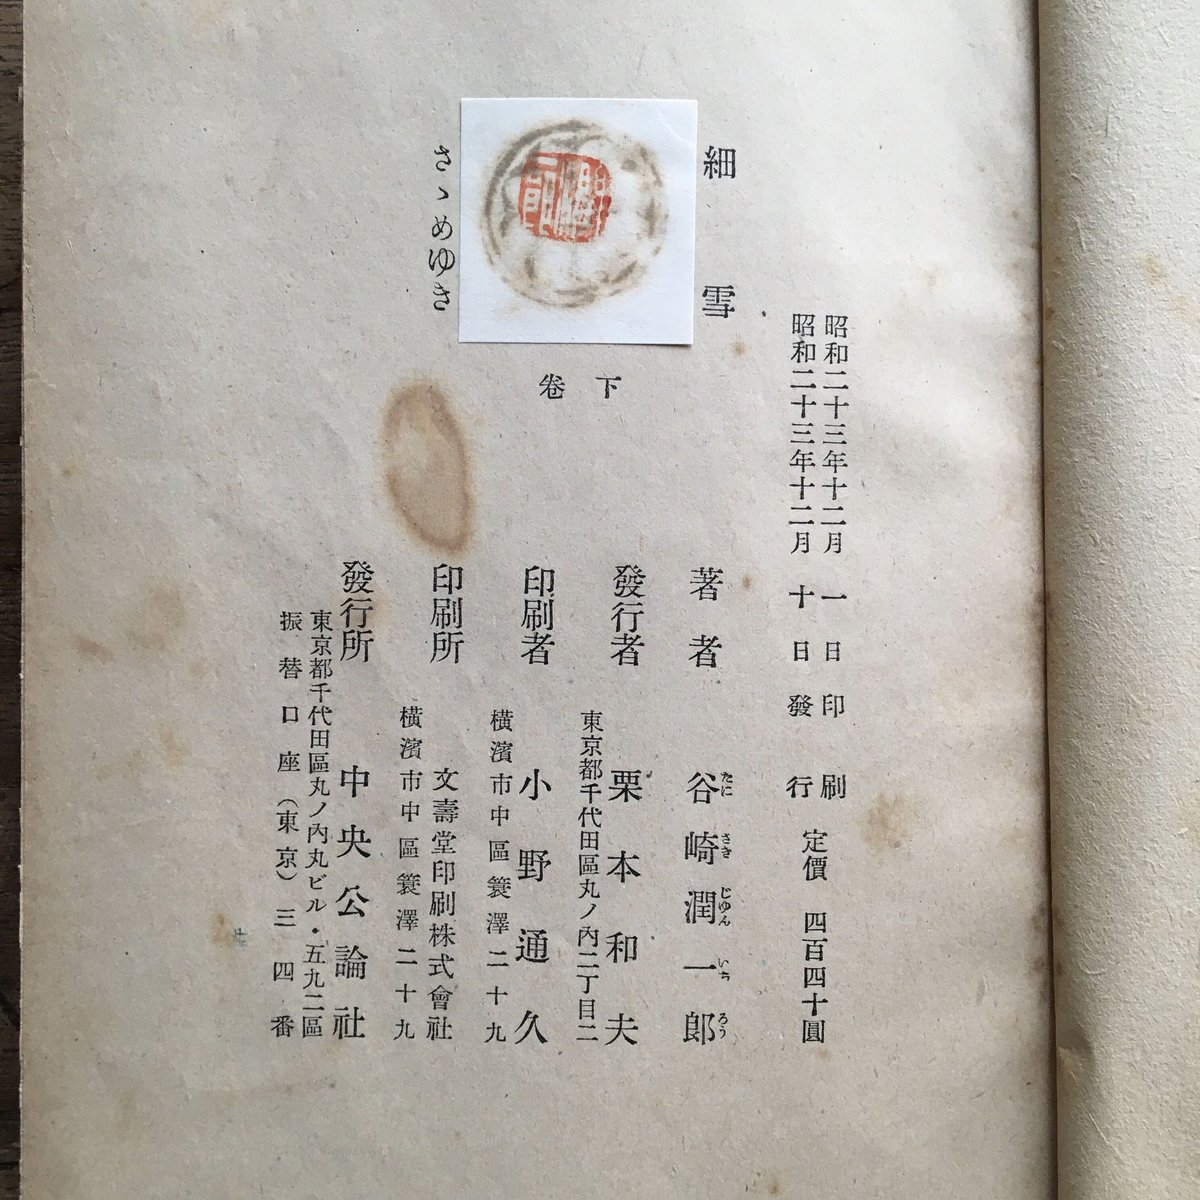 昭和二十三年十二月 一日印刷
昭和二十三年十二月 十日發行
定價 四百四十圓
細雪
下卷
さゝめゆき
著者 谷崎潤一郎
たに さき じゆん いち ろう
發行者 栗本和夫
東京都千代田區丸ノ內二丁目二
印刷者 小野通久
横濱市中區簑澤二十九
印刷所 文壽堂印刷株式會社
横濱市中區簑澤二十九
發行所 中央公論社
東京都千代田區丸ノ內丸ビル・五九二區
振替口座(東京)三四番